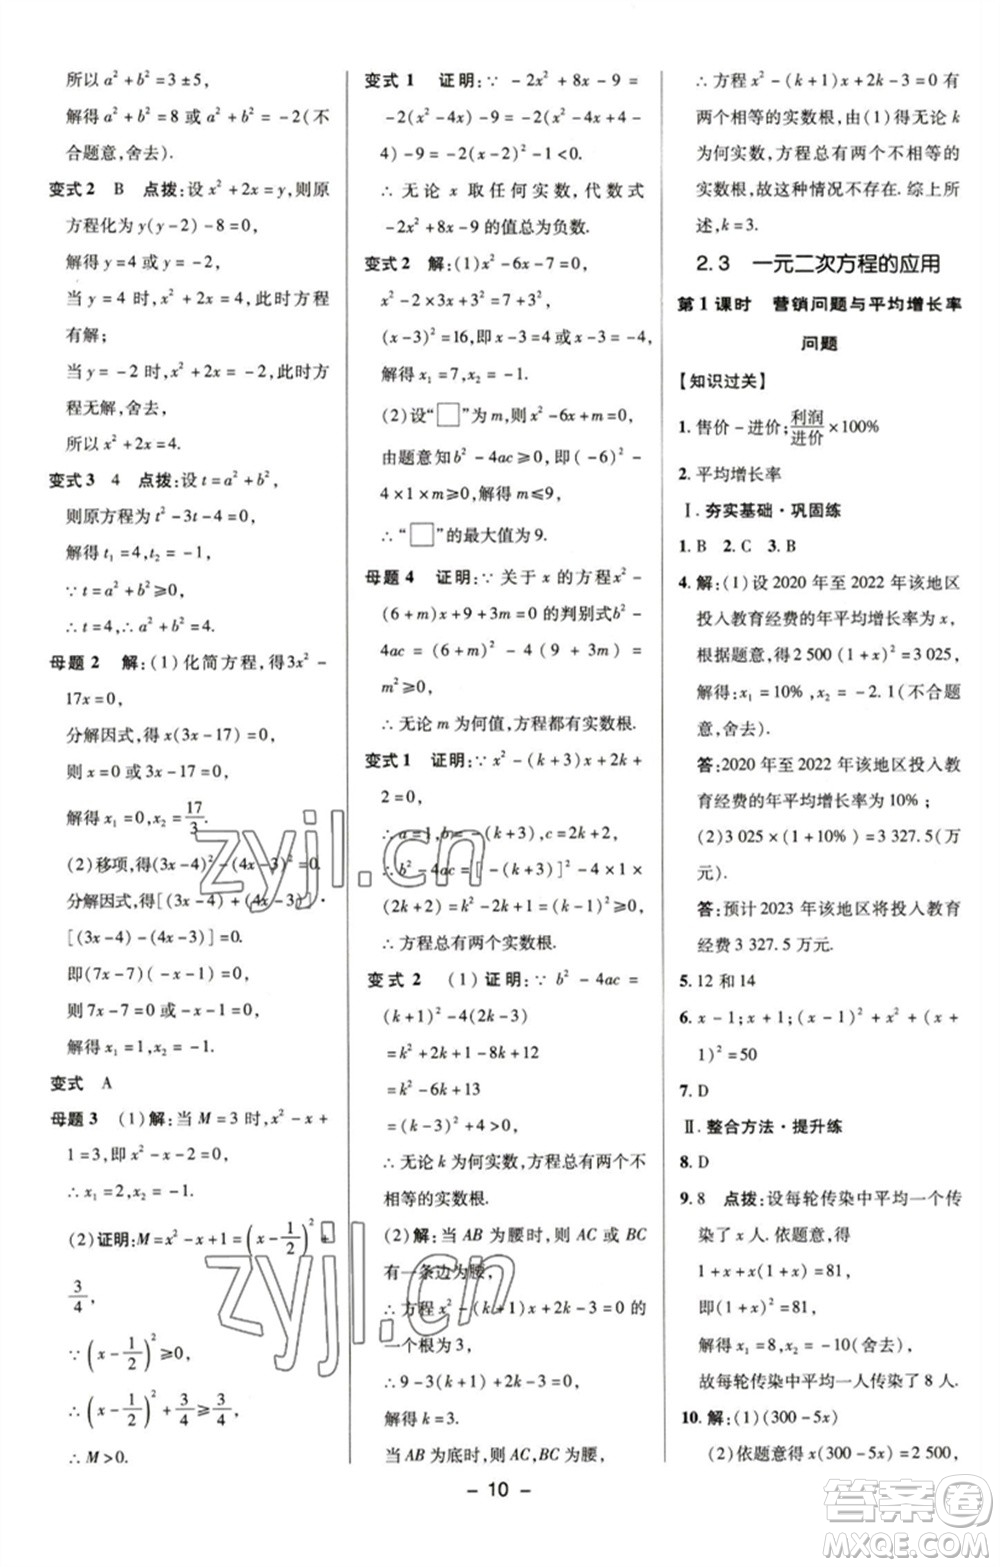 所以 a² + b² = 3 ± 5,
解得 a² + b² = 8 或 a² + b² = -2(不
合题意,舍去).
变式 2 B 点拨:设 x² + 2x = y,则原
方程化为 y(y-2)-8=0,
解得 y=4 或 y=-2,
当 y=4 时,x²+2x=4,此时方程
有解;
当 y=-2 时,x²+2x=-2,此时
方程无解,舍去,
所以 x²+2x=4.
变式 3 4 点拨:设 t=a²+b²,
则原方程为 t²-3t-4=0,
解得 t₁=4,t₂=-1,
∵ a²+b²≥0,
∴ t=4,∴ a²+b²=4.
母题 2 解:(1)化简方程,得3x²-
17x=0,
分解因式,得 x(3x-17)=0,
则 x=0 或 3x-17=0,
解得 x₁=0,x₂=17/3.
(2)移项,得(3x-4)²-(4x-3)²=0.
分解因式,得[(3x-4)+(4x-3)]·
[(3x-4)-(4x-3)]=0.
即(7x-7)(-x-1)=0,
则 7x-7=0 或 -x-1=0,
解得 x₁=1,x₂=-1.
变式 A
母题 3 (1)解:当 M=3 时,x²-x+
1=3,即 x²-x-2=0,
∴ x₁=2,x₂=-1.
(2)证明:M=x²-x+1=(x-1/2)²+
3/4,
∵ (x-1/2)²≥0,
∴ (x-1/2)²+3/4≥3/4,
∴ M>0.
变式 1 证明:∵ -2x²+8x-9=
-2(x²-4x)-9=-2(x²-4x+4-
4)-9=-2(x-2)²-1<0.
∴ 无论 x 取任何实数,代数式
-2x²+8x-9 的值总为负数.
变式 2 解:(1)x²-6x-7=0,
(x-3)²=16,即 x-3=4 或 x-3=-4,
解得 x₁=7,x₂=-1.
(2)设“□”为 m,则 x²-6x+m=0,
由题意知 b²-4ac≥0,即(-6)²-
4×1×m≥0,解得 m≤9,
∴ “□”的最大值为 9.
母题 4 证明:∵ 关于 x 的方程x²-
(6+m)x+9+3m=0 的判别式b²-
4ac=(6+m)²-4(9+3m)=
m²≥0,
∴ 无论 m 为何值,方程都有实数根.
变式 1 证明:∵ x²-(k+3)x+2k+
2=0,
∴ a=1,b=-(k+3),c=2k+2,
∴ b²-4ac=[-(k+3)]²-4×1×
(2k+2)=k²-2k+1=(k-1)²≥0,
∴ 方程总有两个实数根.
变式 2 (1)证明:∵ b²-4ac=
(k+1)²-4(2k-3)
=k²+2k+1-8k+12
=k²-6k+13
=(k-3)²+4>0,
∴ 无论 k 为何实数,方程总有两个不
相等的实数根.
(2)解:当 AB 为腰时,则 AC 或 BC
有一条边为腰,
∴ 方程 x²-(k+1)x+2k-3=0 的
一个根为 3,
∴ 9-3(k+1)+2k-3=0,
解得 k=3.
当 AB 为底时,则 AC,BC 为腰,
∴ 方程 x²-(k+1)x+2k-3=0 有
两个相等的实数根,由(1)得无论 k
为何实数,方程总有两个不相等的
实数根,故这种情况不存在.综上所
述,k=3.
2.3 一元二次方程的应用
第 1 课时 营销问题与平均增长率
问题
【知识过关】
1. 售价-进价;利润/进价×100%
2. 平均增长率
Ⅰ. 夯实基础·巩固练
1. B 2. C 3. B
4. 解:(1)设 2020 年至 2022 年该地区
投入教育经费的年平均增长率为 x,
根据题意,得 2 500(1+x)²=3 025,
解得:x₁=10%,x₂=-2.1(不合题
意,舍去).
答:2020 年至 2022 年该地区投入教
育经费的年平均增长率为 10%;
(2)3 025×(1+10%)=3 327.5(万
元).
答:预计 2023 年该地区将投入教育
经费 3 327.5 万元.
5. 12 和 14
6. x-1;x+1;(x-1)²+x²+(x+
1)²=50
7. D
Ⅱ. 整合方法·提升练
8. D
9. 8 点拨:设每轮传染中平均一个传
染了 x 人.依题意,得
1+x+x(1+x)=81,
即(1+x)²=81,
解得 x₁=8,x₂=-10(舍去),
故每轮传染中平均一人传染了 8 人.
10. 解:(1)(300-5x)
(2)依题意得 x(300-5x)=2 500,
- 10 -
zyjl.cn
zyjl.cn
答案圈
MXQE.COM